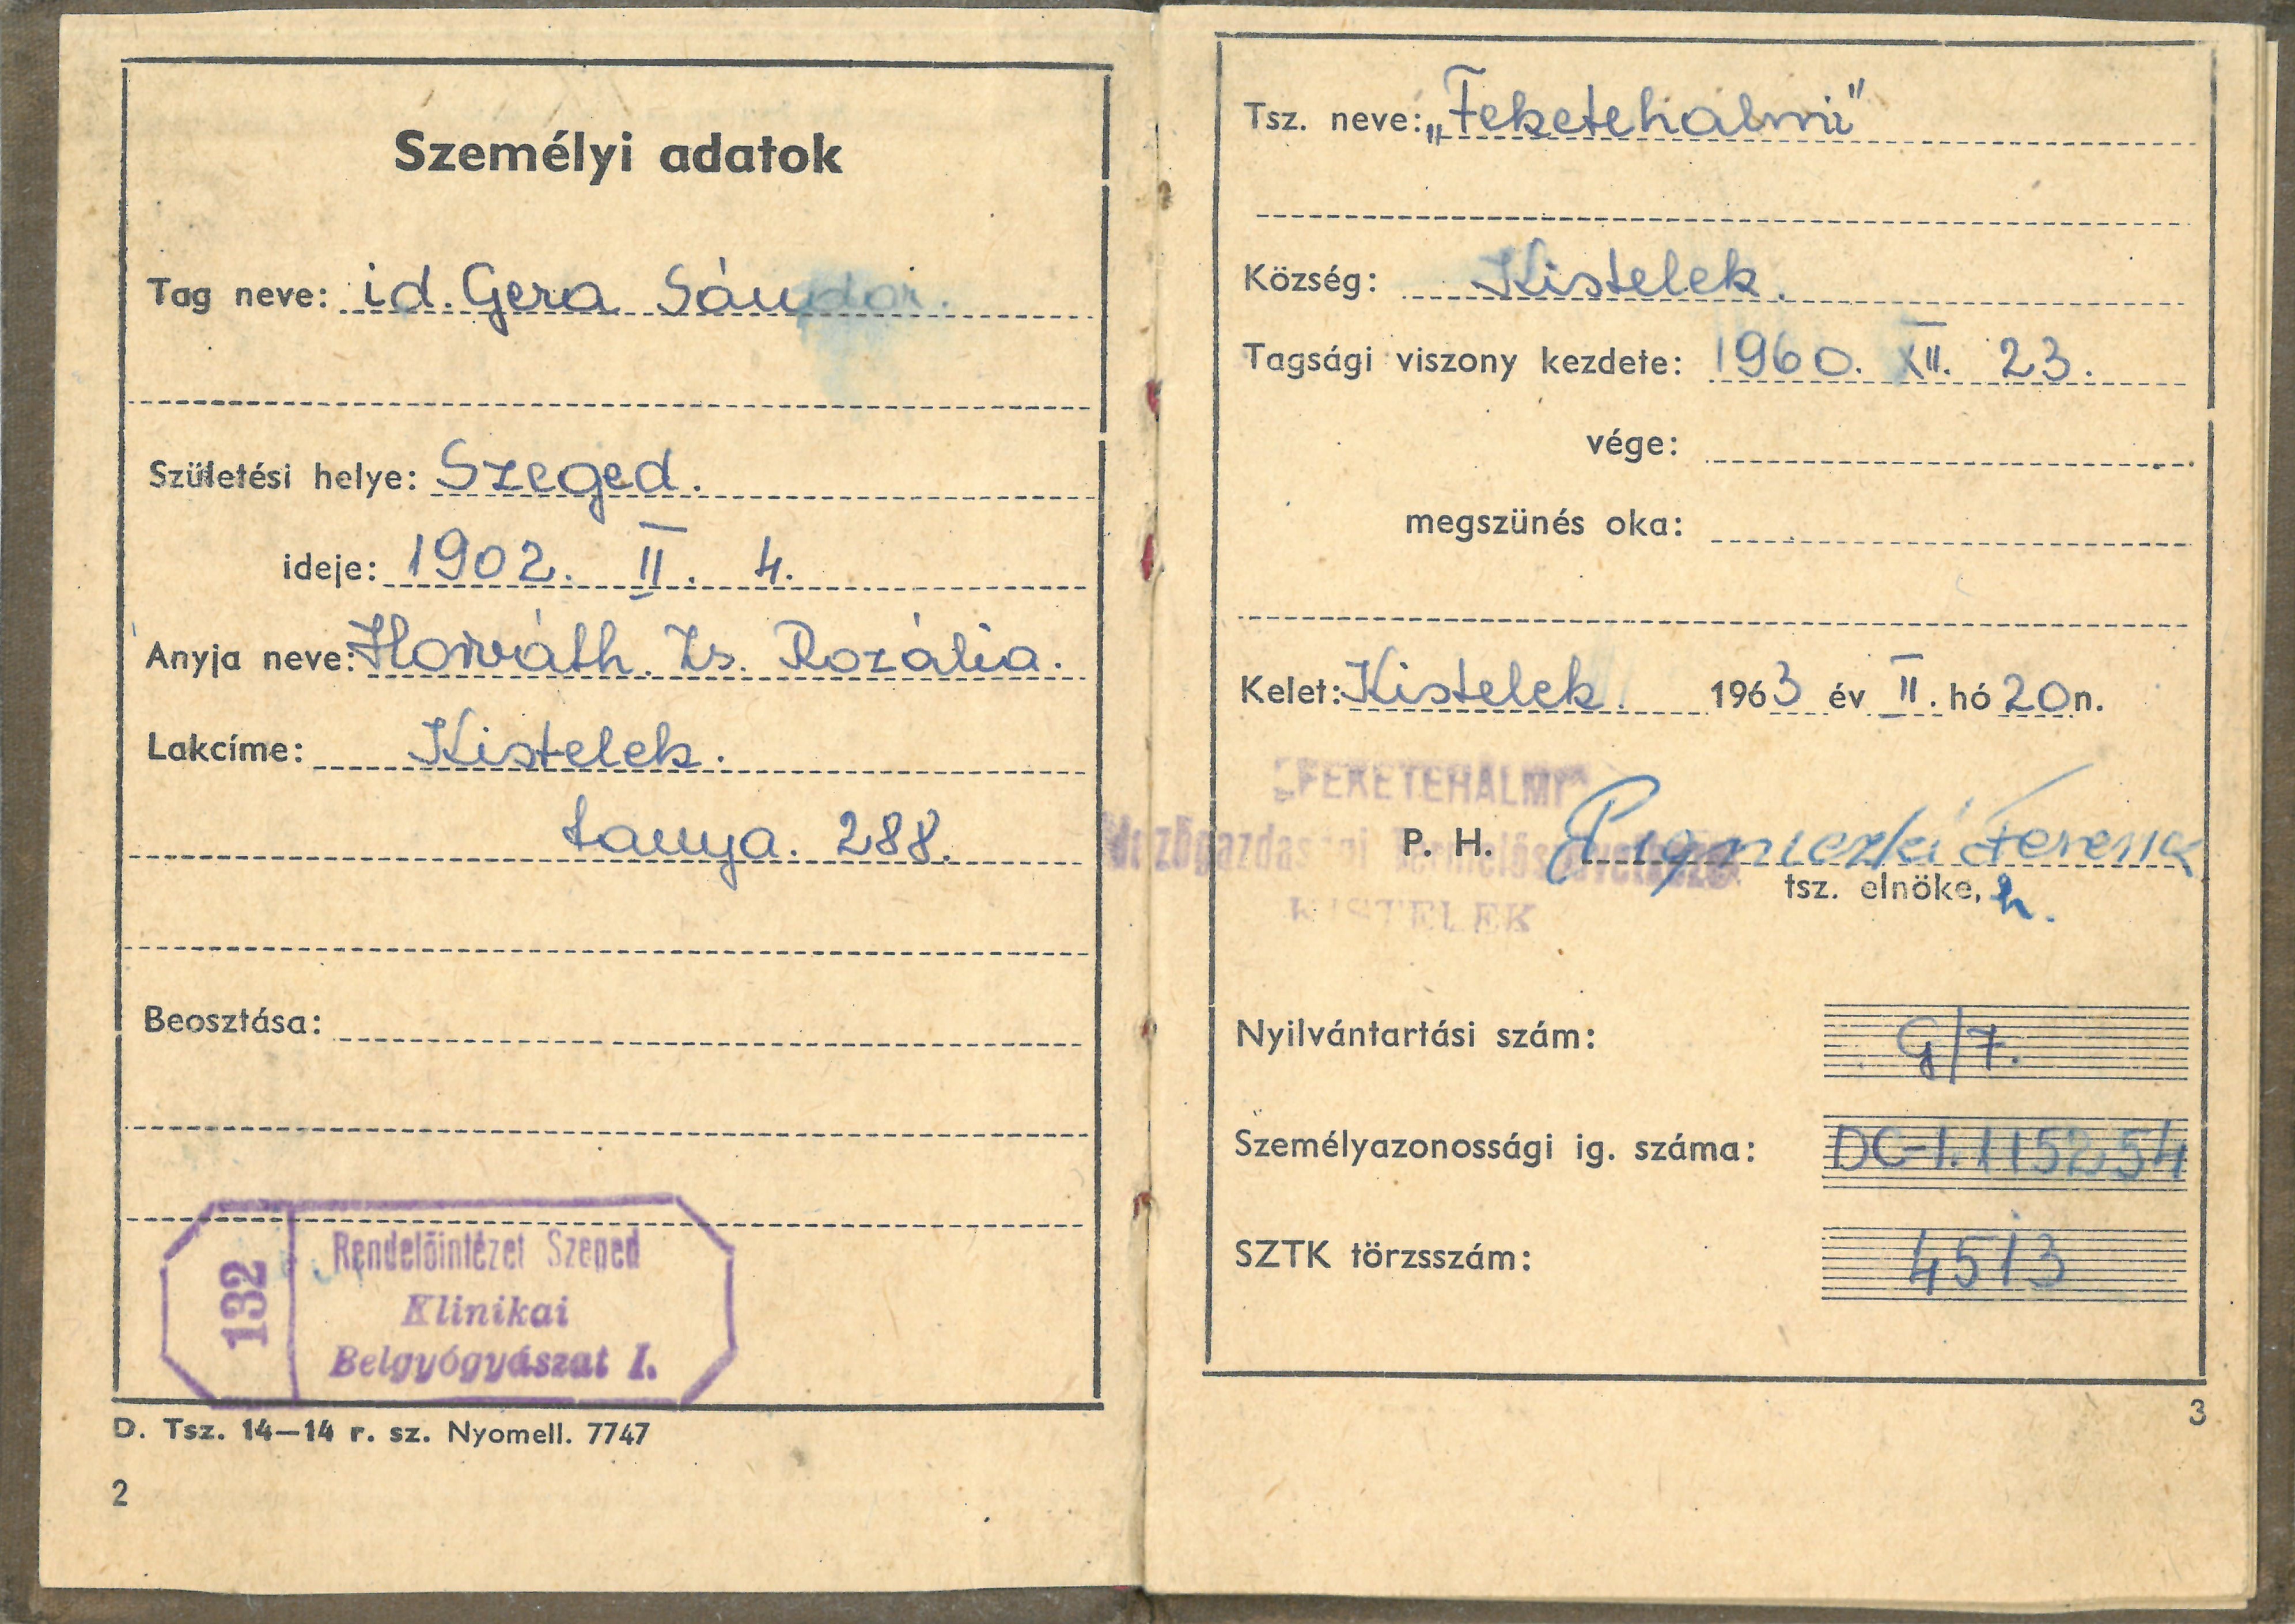 Személyi adatok
Tag neve: id. Gera Sándor.
Születési helye: Szeged.
ideje: 1902. II. 4.
Anyja neve: Horváth. Zs. Rozália.
Lakcíme: Kistelek.
tanya. 288.
Beosztása:
132
Rendelőintézet Szeged
Klinikai
Belgyógyászat I.
D. Tsz. 14—14 r. sz. Nyomell. 7747
2
Tsz. neve: „Feketehalmi"
Község: Kistelek.
Tagsági viszony kezdete: 1960. XII. 23.
vége:
megszünés oka:
Kelet: Kistelek. 1963 év II. hó 20n.
„FEKETEHALMI"
Mezőgazdasági Termelőszövetkezet
KISTELEK
P. H. Ferenc
tsz. elnöke, h.
Nyilvántartási szám: G/7.
Személyazonossági ig. száma: DC-I. 115254
SZTK törzsszám: 4513
3